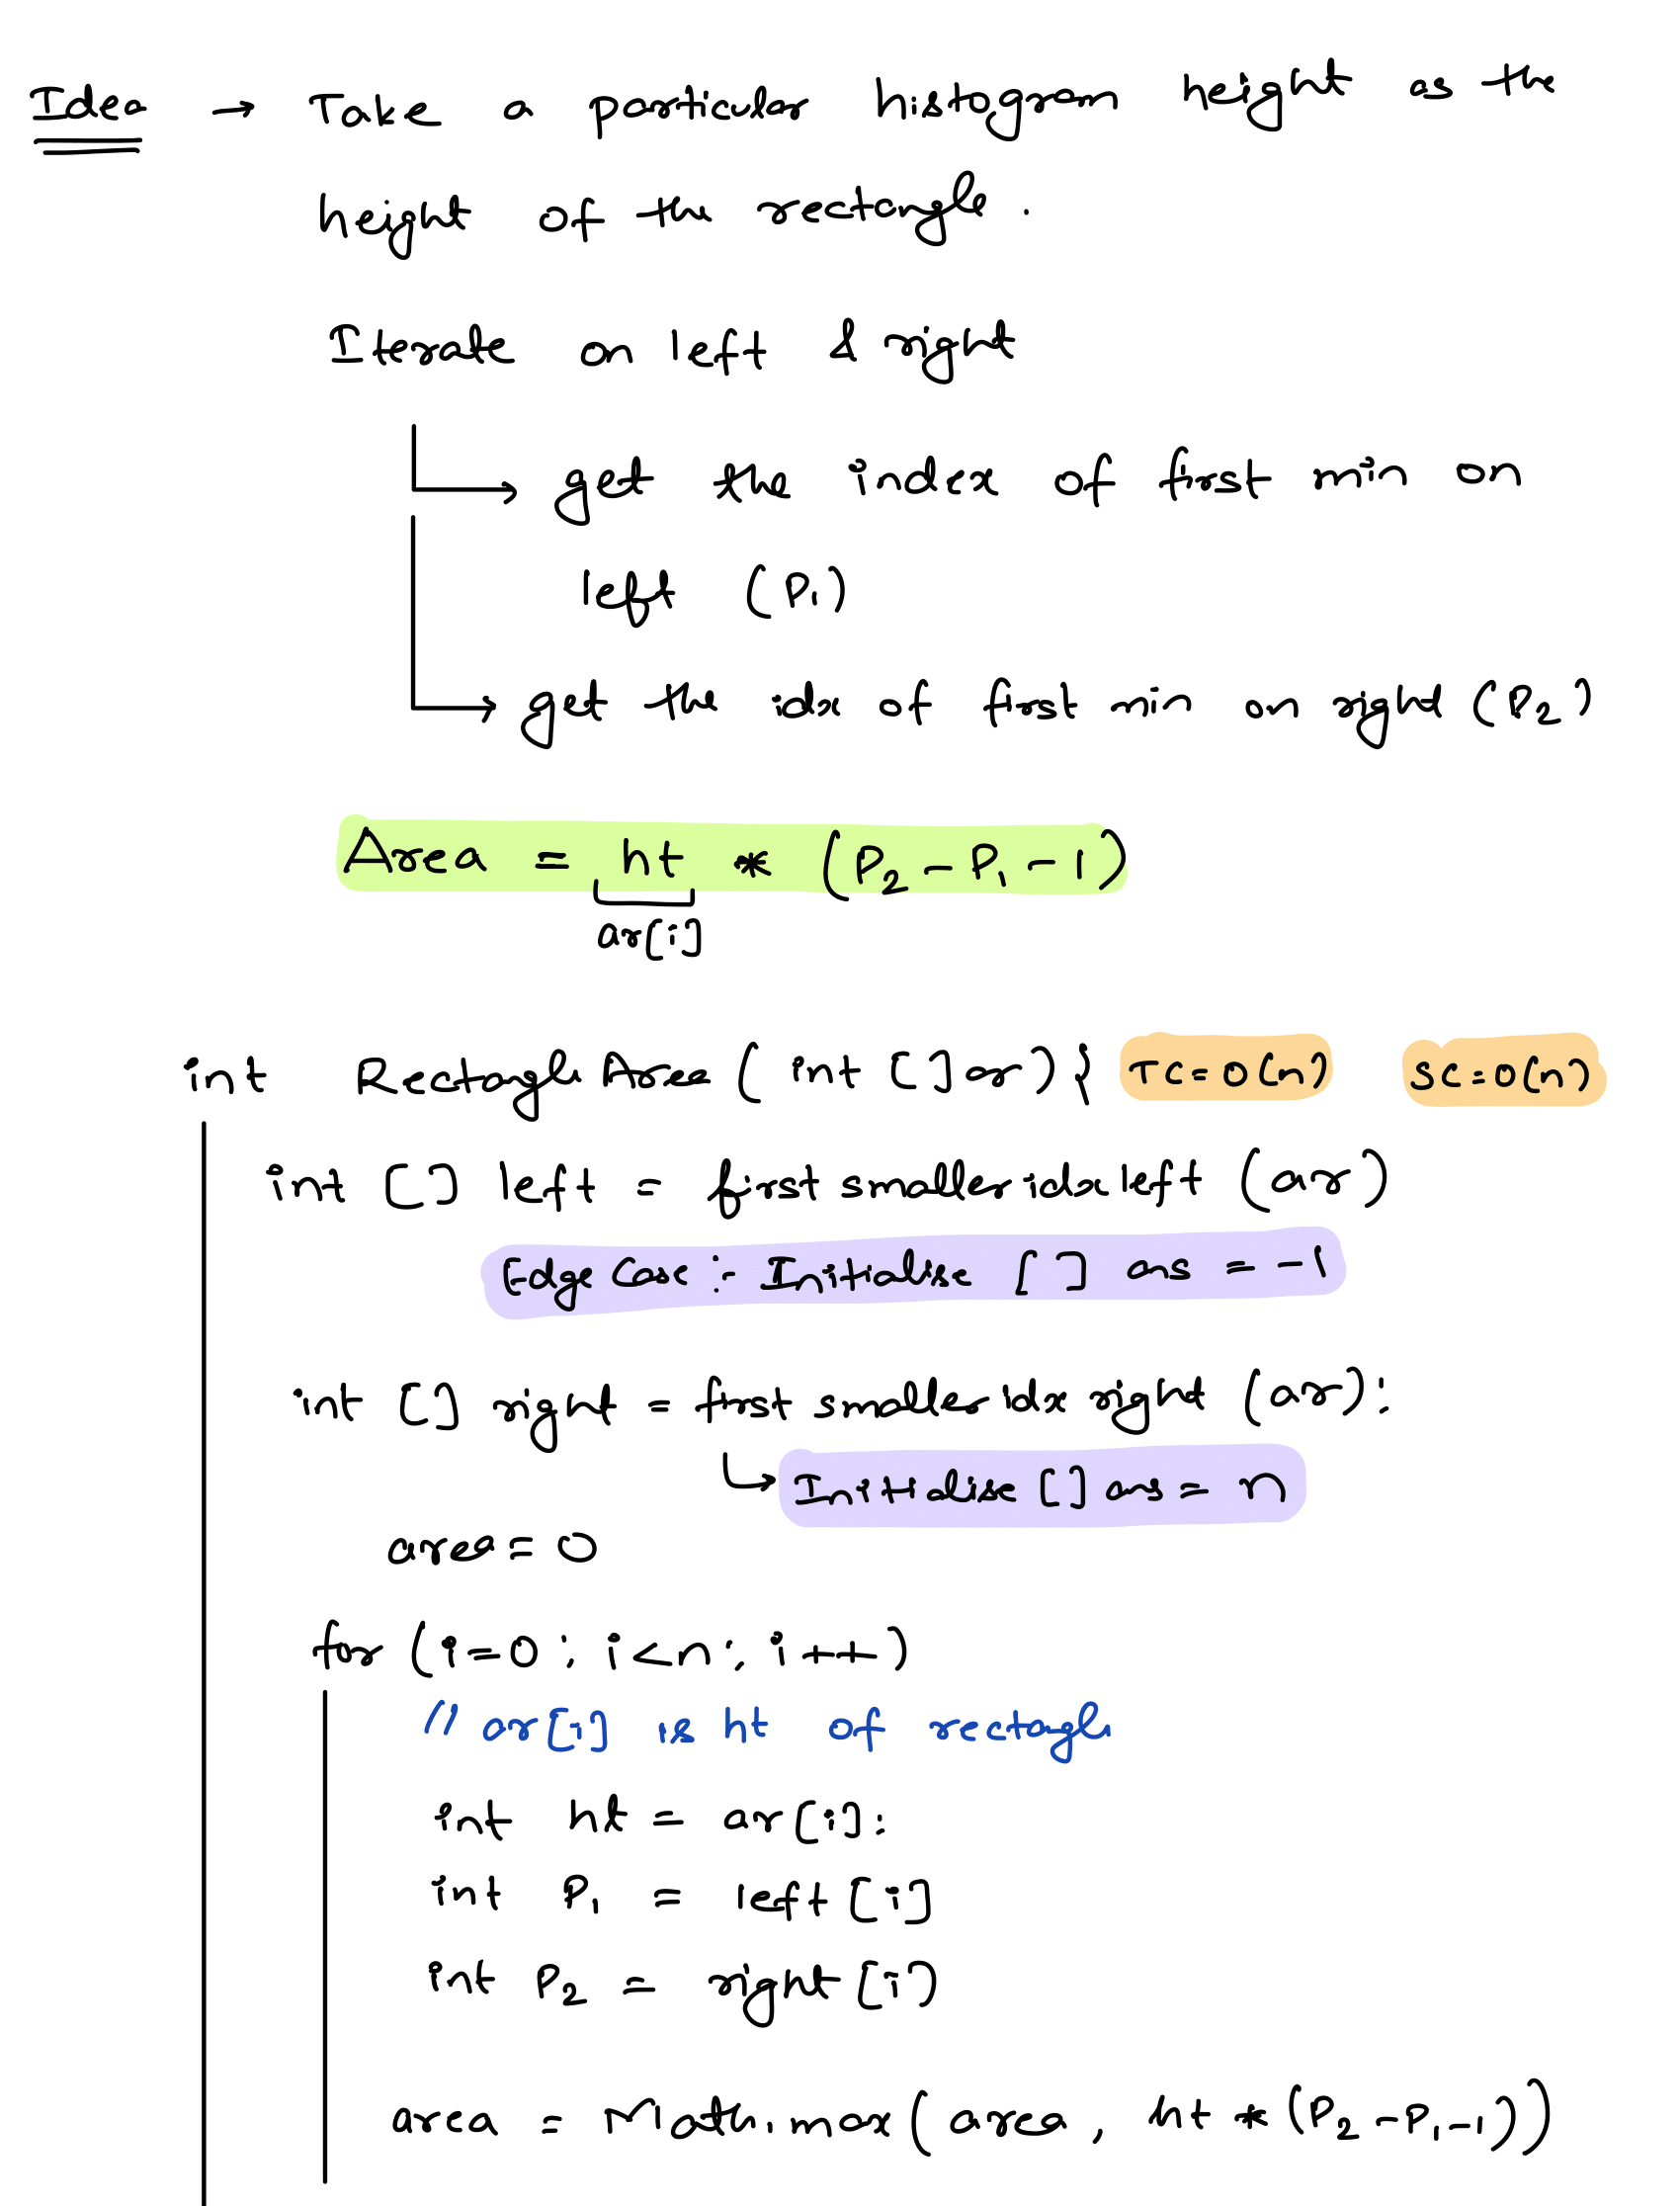 Idea → Take a particular histogram height as the
height of the rectangle.
Iterate on left & right
get the index of first min on
left (P1)
get the idx of first min on right (P2)
Area = ht * (P2 - P1 - 1)
ar[i]
int Rectangle Area (int [] ar) { TC = O(n) SC = O(n)
int [] left = first smaller idx left (ar)
Edge Case :- Initialise [] as = -1
int [] right = first smaller idx right (ar);
↳ Initialise [] as = n
area = 0
for (i=0; i<n; i++)
// ar[i] is ht of rectangle
int ht = ar[i];
int P1 = left [i]
int P2 = right [i]
area = Math.max(area, ht * (P2 - P1 - 1))